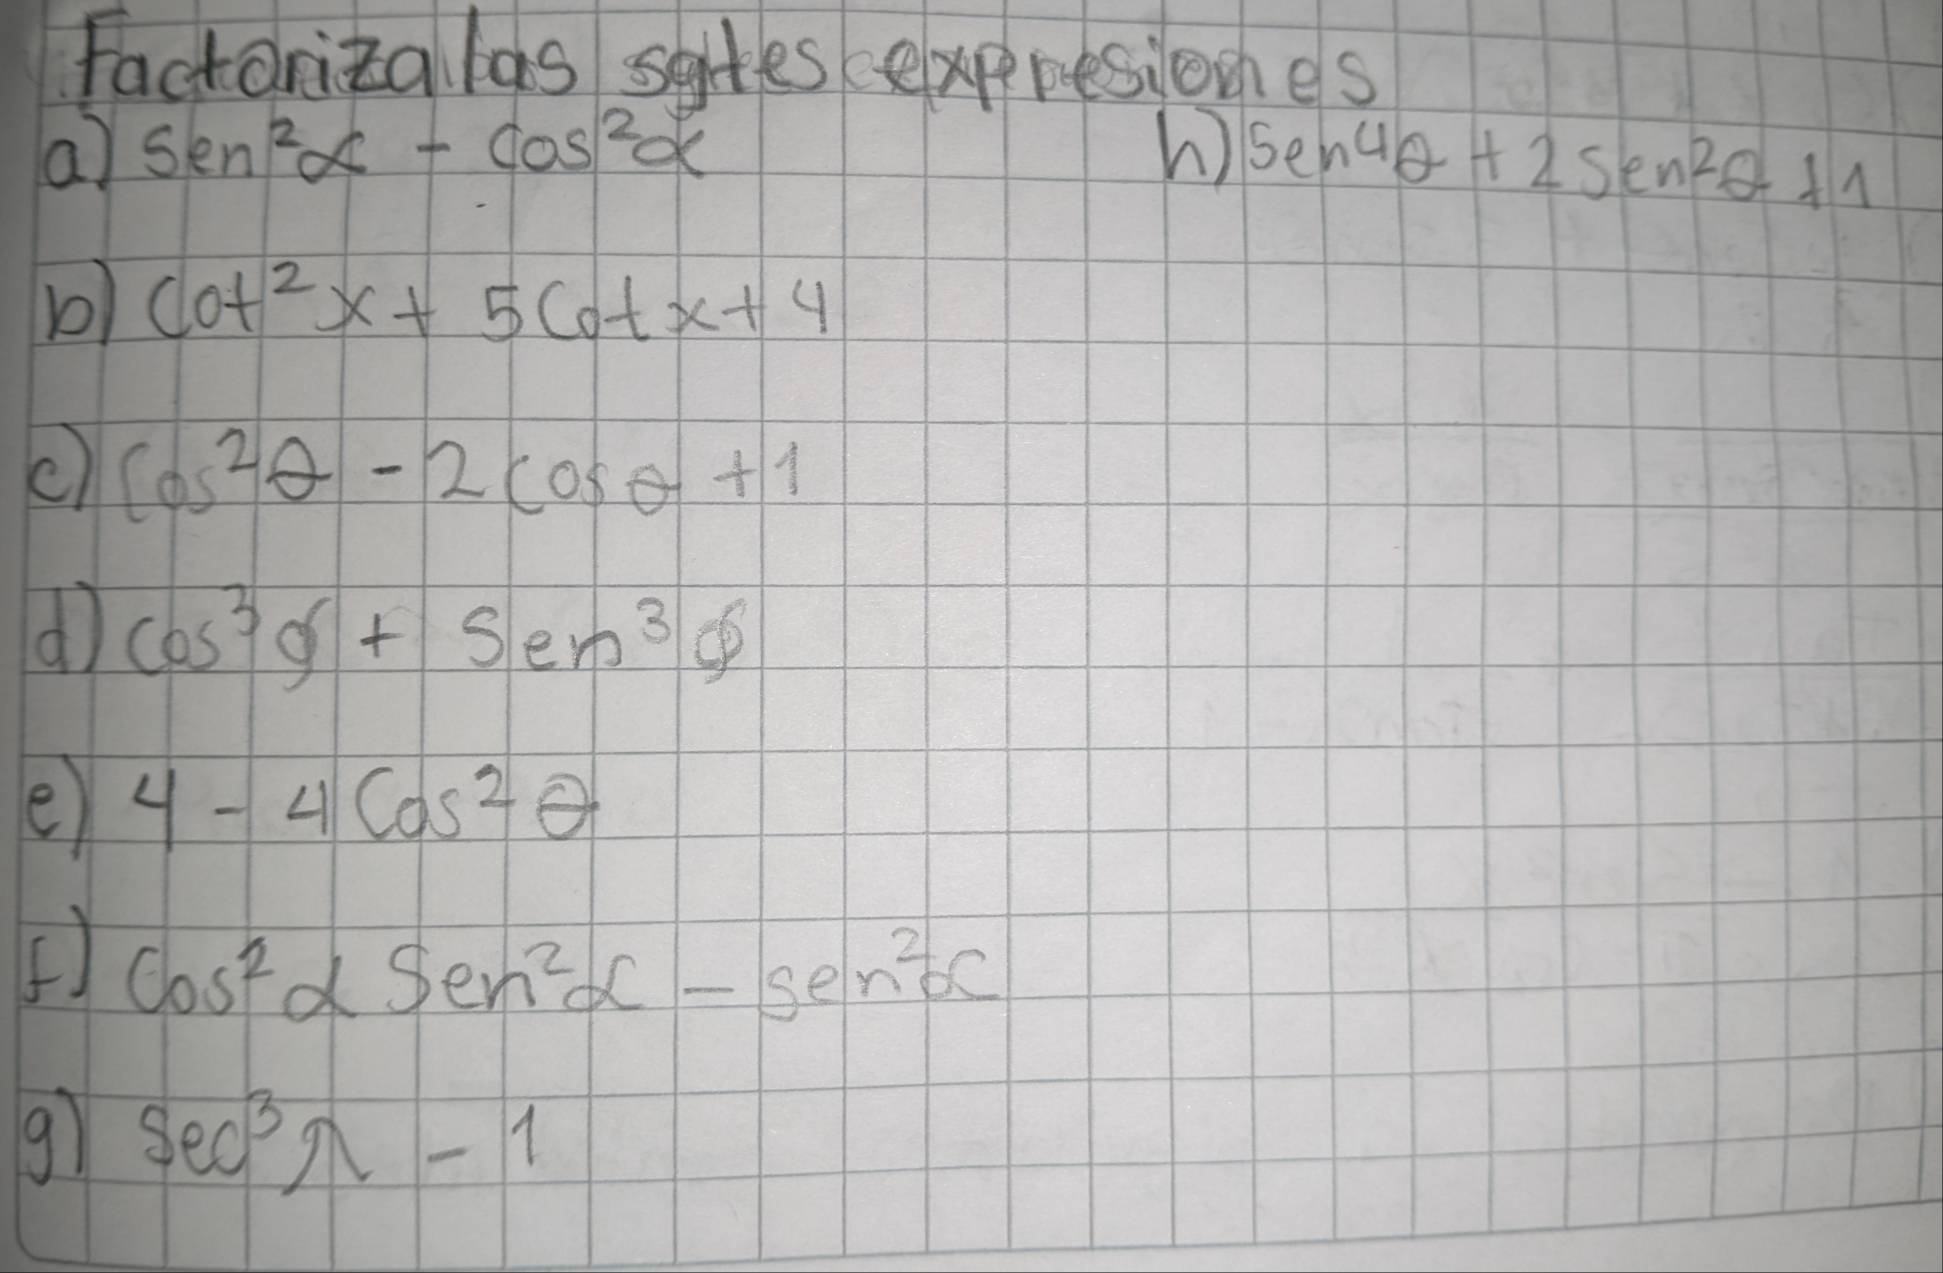 Factoriza las sgtes expresiones
a) Sen²α - Cos²α
h) Sen⁴θ + 2 Sen²θ + 1
b) Cot²x + 5 Cot x + 4
c) Cos²θ - 2 Cos θ + 1
d) Cos³φ + Sen³φ
e) 4 - 4 Cos²θ
f) Cos²α Sen²α - sen²α
g) Sec³λ - 1